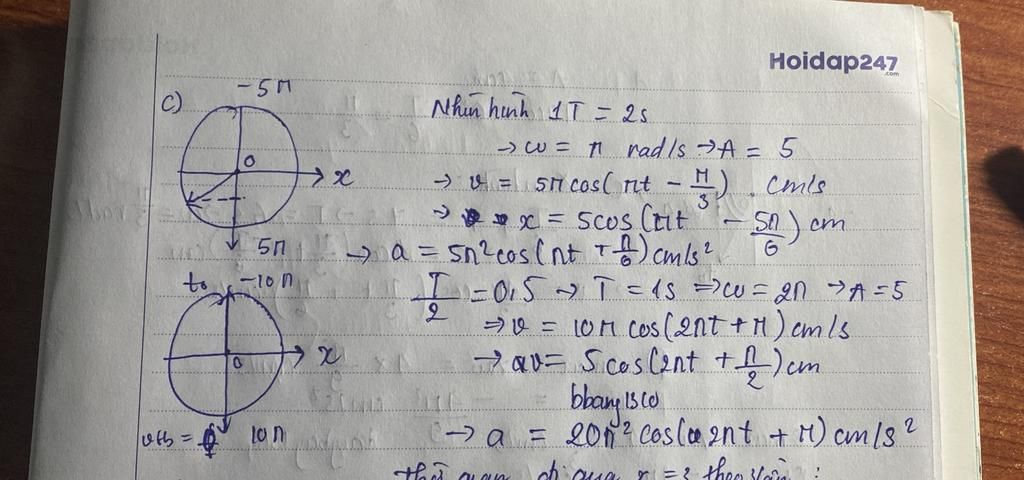 Hoidap247
.com
c)
-5π
Nhìn hình 1T = 2s
→ ω = π rad/s → A = 5
O
x
→ v = 5π cos(πt - π/3) cm/s
→ x = 5cos(πt - 5π/6) cm
5π
→ a = 5π² cos(πt + π/6) cm/s²
to
-10π
T/2 = 0,5 → T = 1s ⇒ ω = 2π → A = 5
⇒ v = 10π cos(2πt + π) cm/s
O
x
→ = 5 cos(2πt + π/2) cm
10π
→ a = 20π² cos(2πt + π) cm/s²